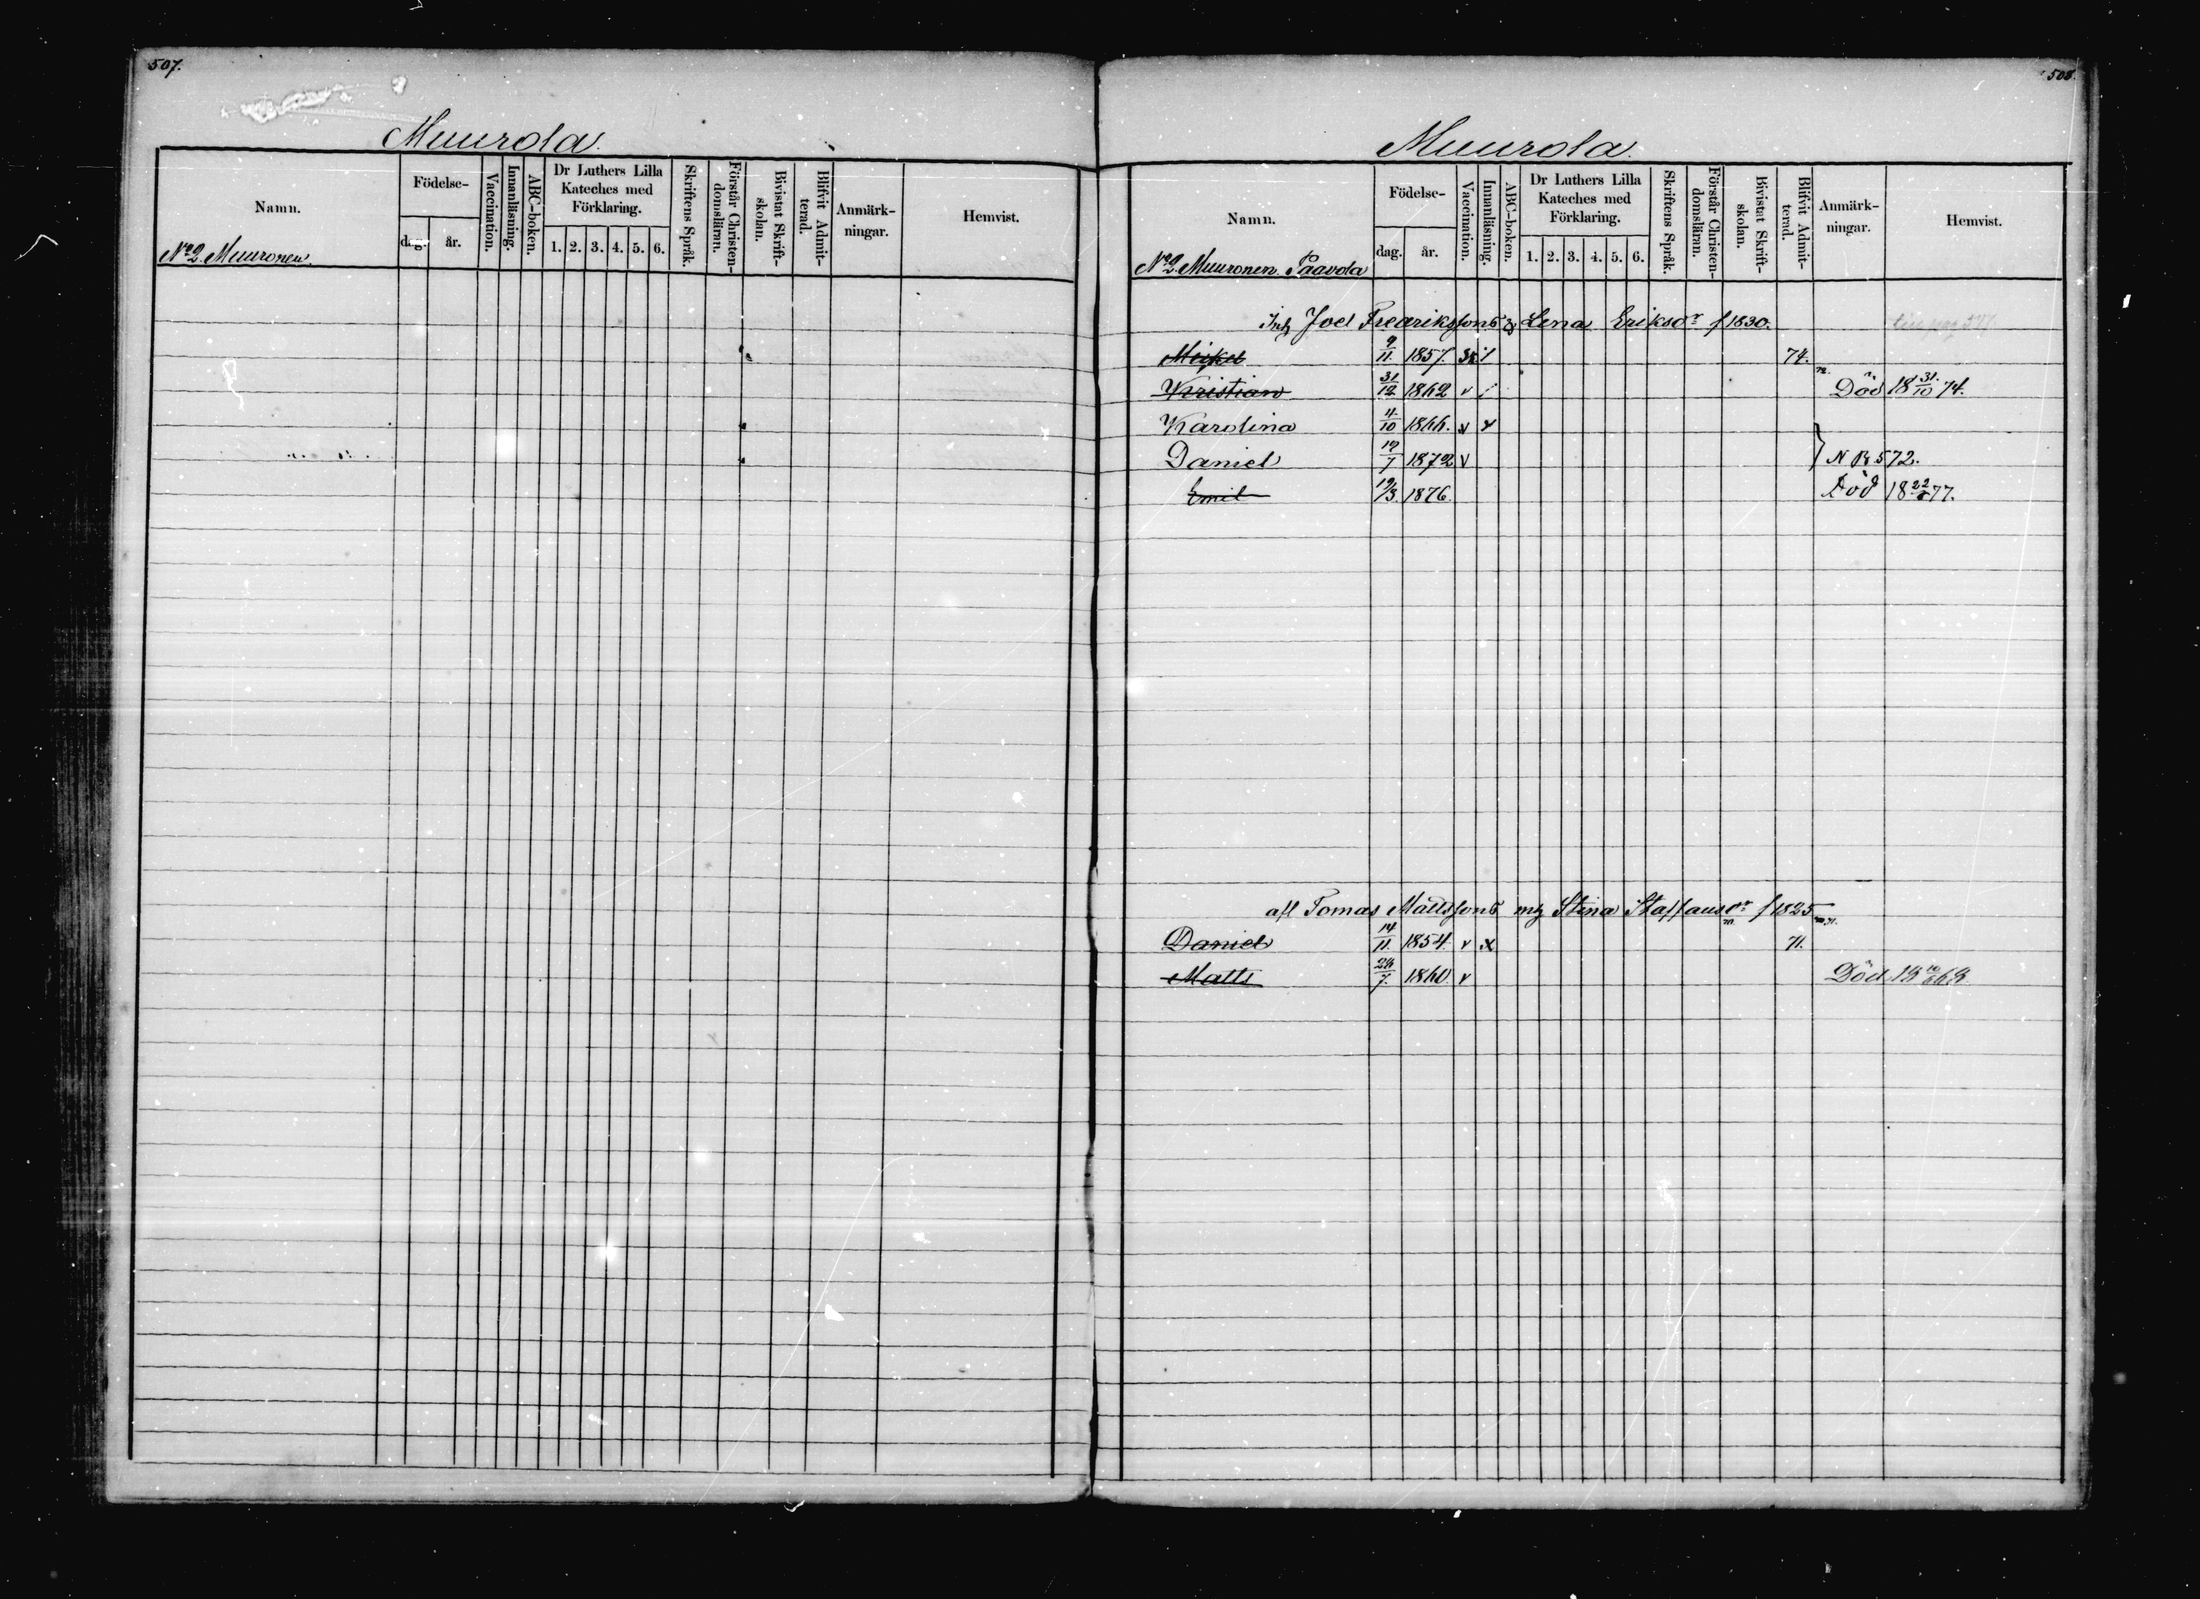 507.
Muurola.
Namn.
Födelse-
dag.
år.
Vaccination.
Innanläsning.
ABC-boken.
Dr Luthers Lilla
Kateches med
Förklaring.
1. 2. 3. 4. 5. 6.
Skriftens Språk.
Förstår Christen-
domsläran.
Bivistat Skrift-
skolan.
Blifvit Admit-
terad.
Anmärk-
ningar.
Hemvist.
No 2 Muuronen.
508.
Muurola.
Namn.
Födelse-
dag.
år.
Vaccination.
Innanläsning.
ABC-boken.
Dr Luthers Lilla
Kateches med
Förklaring.
1. 2. 3. 4. 5. 6.
Skriftens Språk.
Förstår Christen-
domsläran.
Bivistat Skrift-
skolan.
Blifvit Admit-
terad.
Anmärk-
ningar.
Hemvist.
No 2 Muuronen. Paavola
Joel Fredrikssons Lena Eriksdr f 1830.
Mikel 9/11 1857. 74.
Kristian 31/12 1862 v Död 18 31/10 74.
Karolina 4/10 1866. v v
Daniel 19/7 1872 v } N B 572.
Emil 19/3. 1876. Död 18 77.
afl Tomas Mattssons Stina Staffansdr f 1825
Daniel 14/11 1854. v x 71.
Matts 26/7. 1860. v Död 18 68.